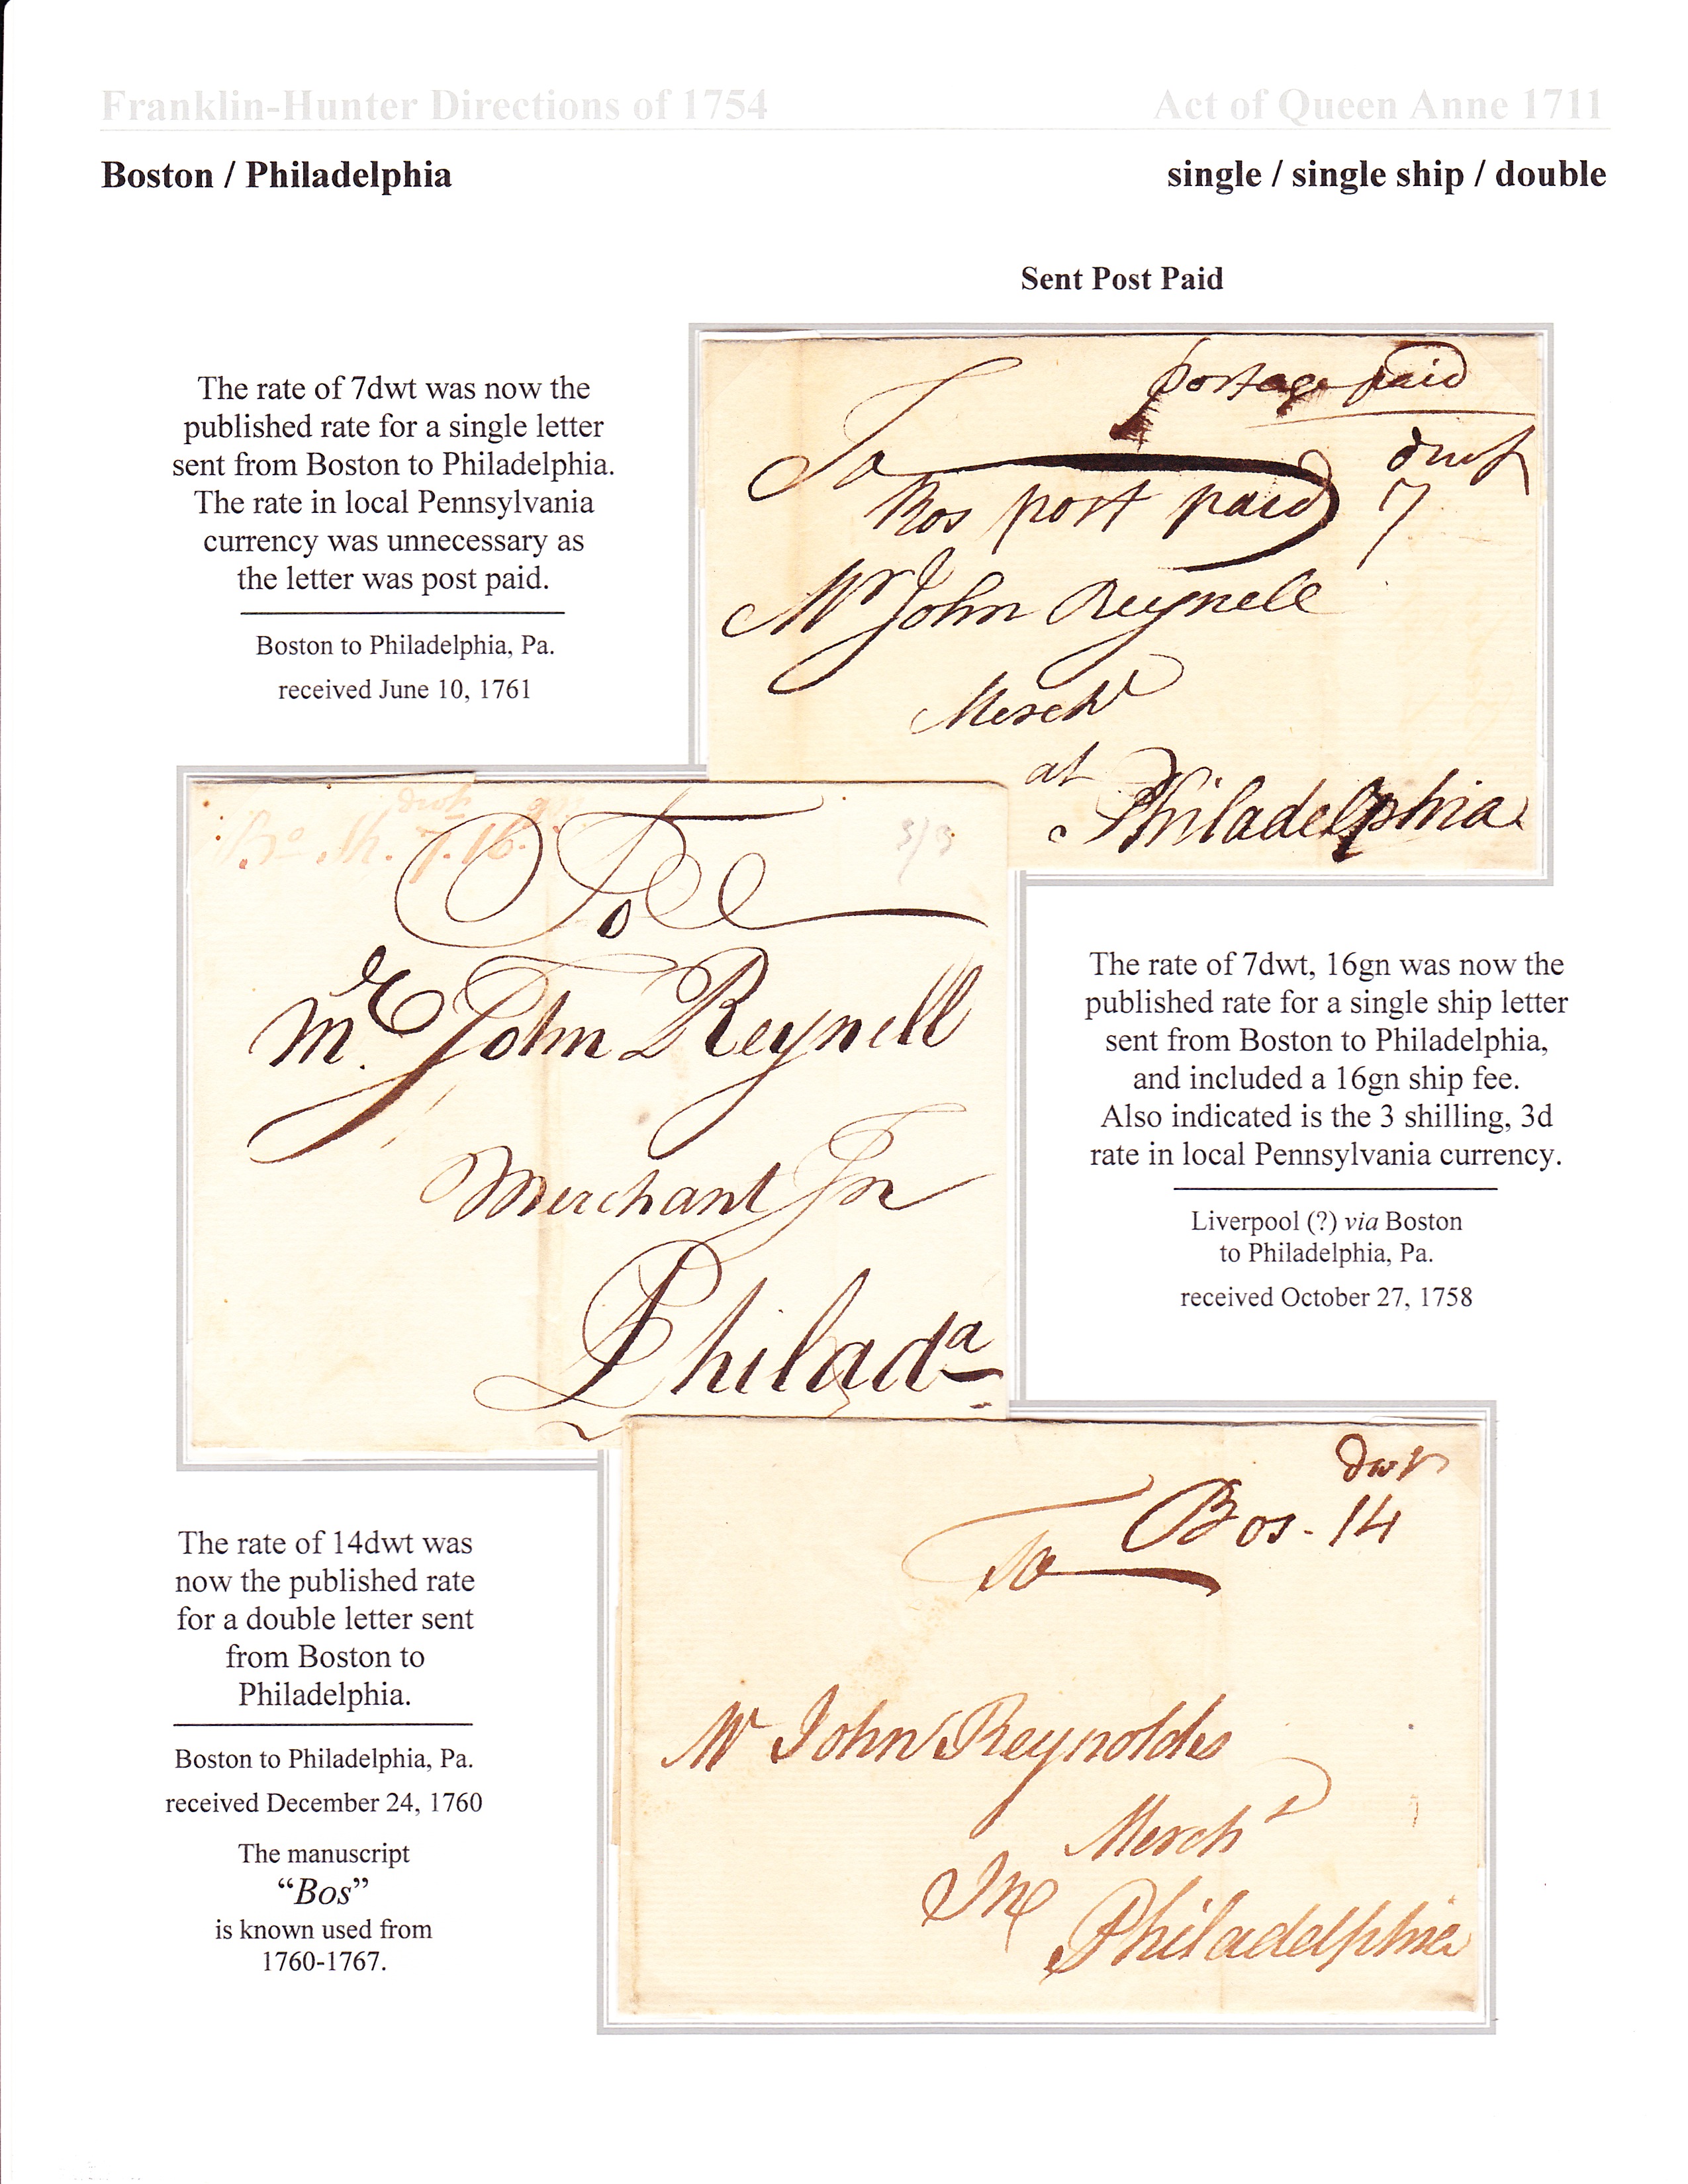 Franklin-Hunter Directions of 1754
Act of Queen Anne 1711
Boston / Philadelphia
single / single ship / double
Sent Post Paid
The rate of 7dwt was now the
published rate for a single letter
sent from Boston to Philadelphia.
The rate in local Pennsylvania
currency was unnecessary as
the letter was post paid.
Boston to Philadelphia, Pa.
received June 10, 1761
postage paid
To
dwt
Bos post paid 7
Mr John Reynell
Mercht
at
Philadelphia
dwt gn
Bo Sh. 7.16.
3/3
To
Mr. John Reynell
Merchant In
Philada
The rate of 7dwt, 16gn was now the
published rate for a single ship letter
sent from Boston to Philadelphia,
and included a 16gn ship fee.
Also indicated is the 3 shilling, 3d
rate in local Pennsylvania currency.
Liverpool (?) via Boston
to Philadelphia, Pa.
received October 27, 1758
The rate of 14dwt was
now the published rate
for a double letter sent
from Boston to
Philadelphia.
Boston to Philadelphia, Pa.
received December 24, 1760
The manuscript
“Bos”
is known used from
1760-1767.
dwt
Bos - 14
To
Mr John Reynolds
Mercht
In
Philadelphia